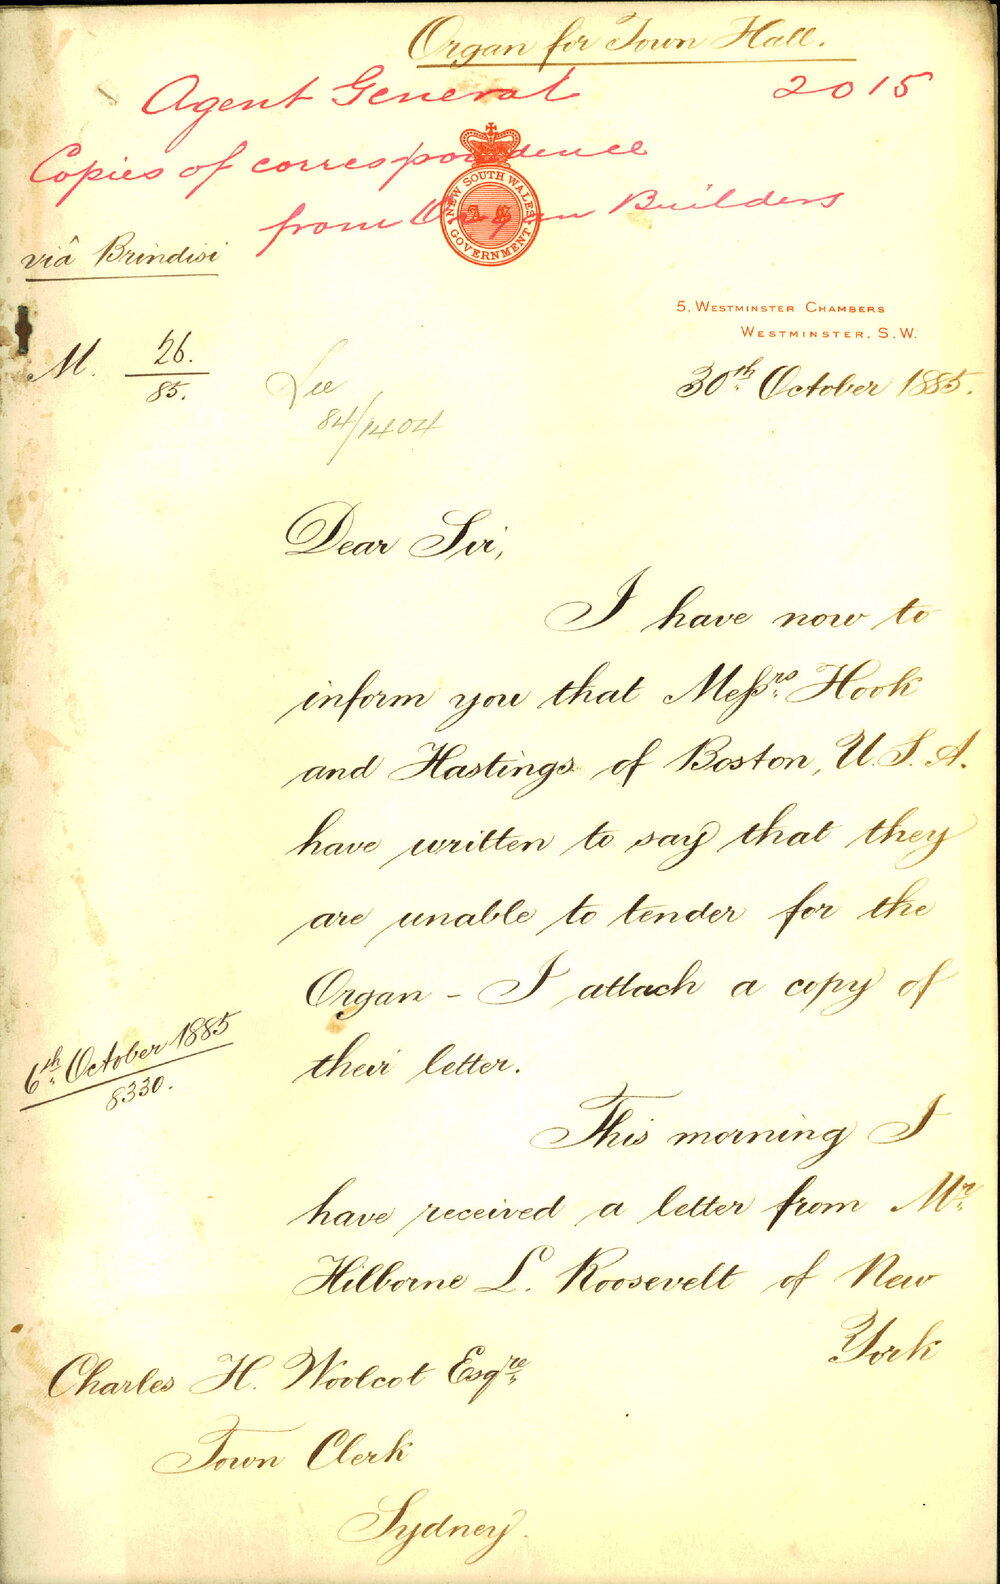 Organ for Town Hall.
Agent General 2015
Copies of correspondence
from Organ Builders
NEW SOUTH WALES
GOVERNMENT
viâ Brindisi
5, WESTMINSTER CHAMBERS
WESTMINSTER. S.W.
M. 26.
85.
30th October 1885.
84/1404
Dear Sir,
I have now to
inform you that Messrs Hook
and Hastings of Boston, U.S.A.
have written to say that they
are unable to tender for the
Organ - I attach a copy of
their letter.
6th October 1885
8330.
This morning I
have received a letter from Mr
Hilborne L. Roosevelt of New
York
Charles H. Woolcot Esqre
Town Clerk
Sydney.